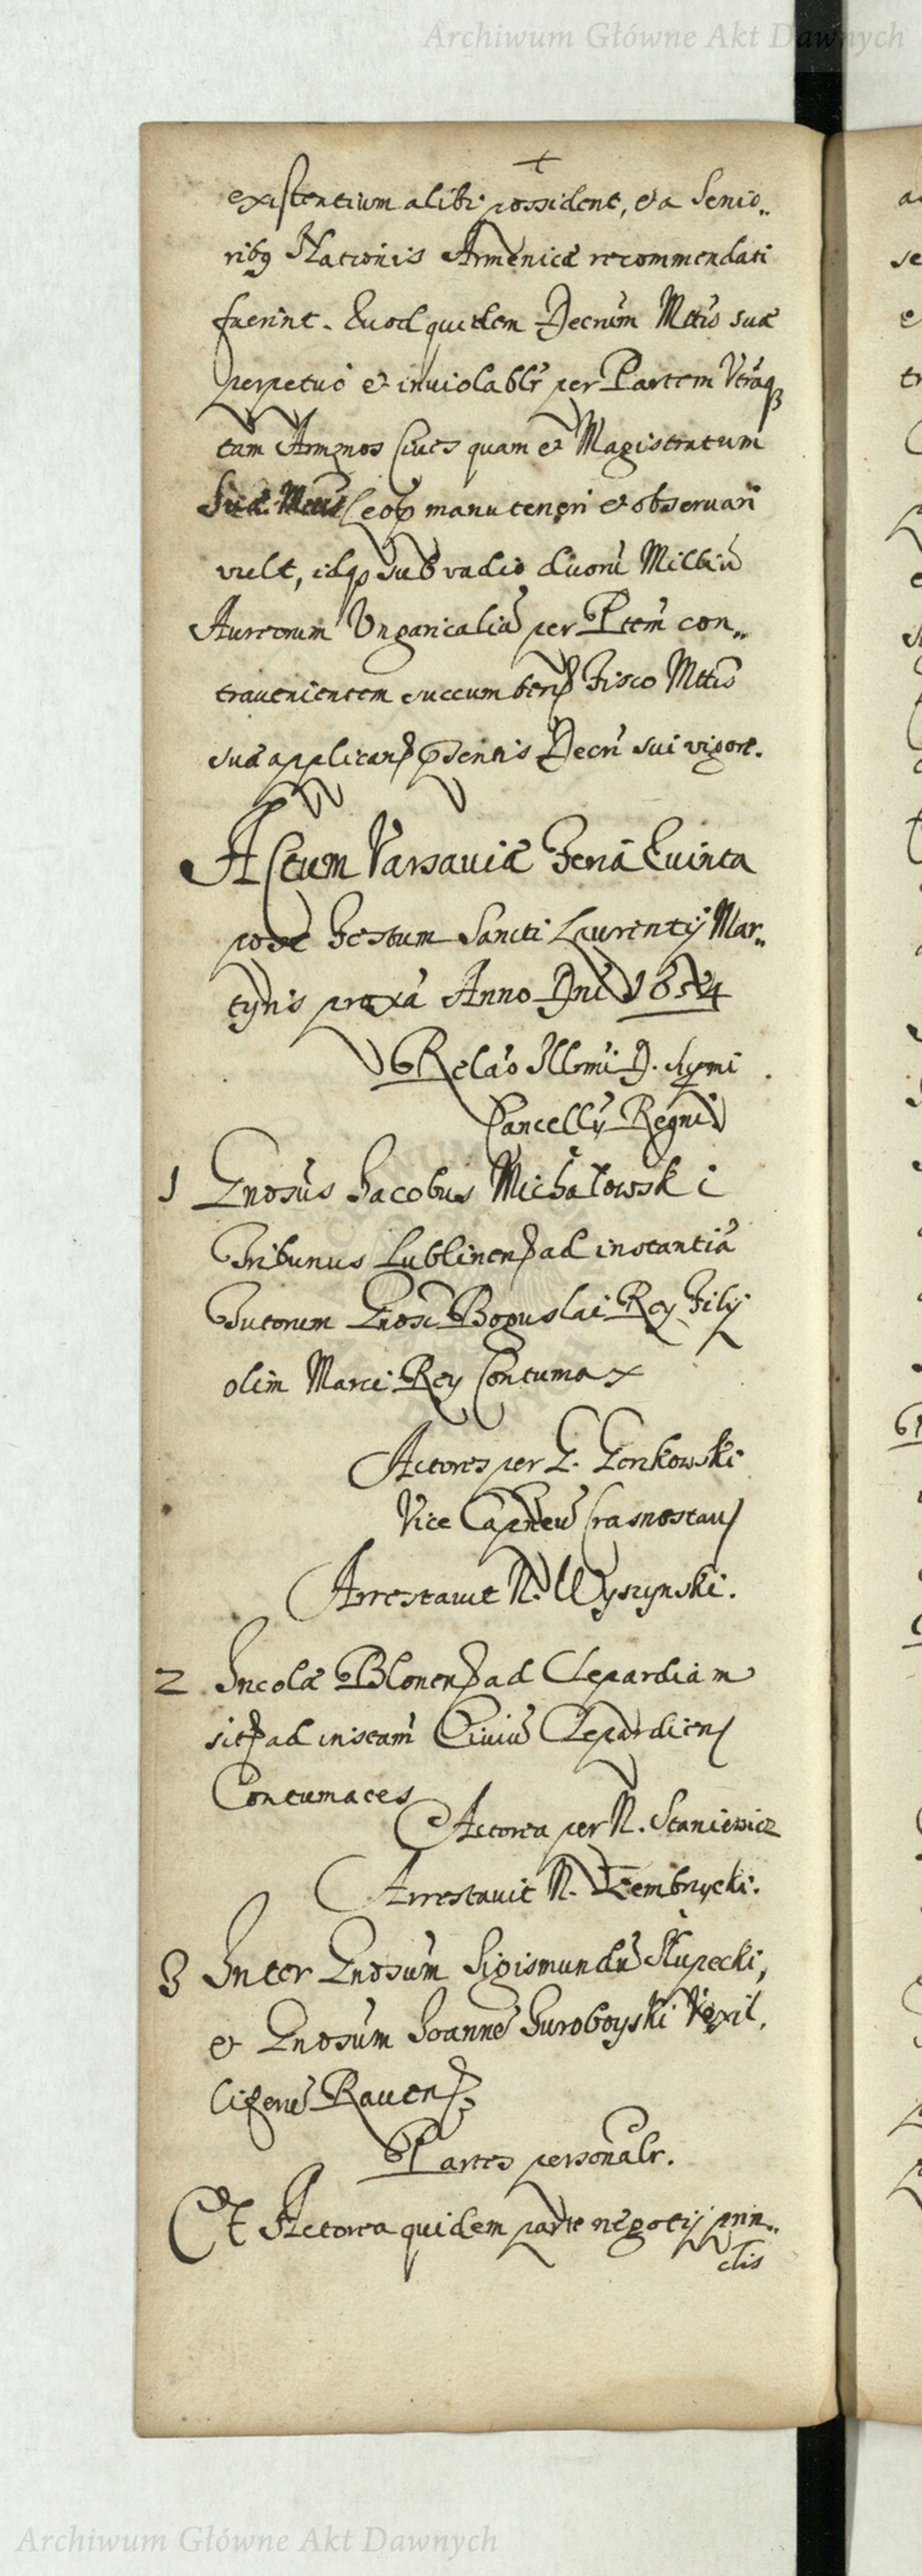 Archiwum Główne Akt Dawnych
+
existentium alibi possident, et a Senio„
ribꝯ Nationis Armenicæ recommendati
fuerint. Quod quidem Decrũm Mttis suæ
perpetuo et inviolablr per Partem Vtrãqꝫ
tam Armenos Cives quam et Magistratum
Suæ Mttis Leop manuteneri et observari
vult, idqꝫ sub vadio duorũ Milliũ
Aureorum Ungaricaliũ per Ptem con„
travenientem succumben Fisco Mttis
suæ applican pꝛsentis Decrti sui vigore.
Actum Varsaviæ Feria Quinta
post Festum Sancti Laurentij Mar„
tyris proxã Anno Dni 1654
Relão Illmi D. Suῥmi
Cancellỹ Regni
1 Gnosus Jacobus Michałowski
Tribunus Lublinen ad instantiã
Tutorum Gnosi Boguslai Rey Filij
olim Marci Rey Contumax
Actores per G. Gorzkowski
Vice Capneũ Crasnostau
Arrestavit N. Wyszynski.
2 Incolæ Blonen ad Clepardiam
sit ad instam̃ Civiũ Clepardien
Contumaces
Actorea per N. Staniewicz
Arrestavit N. Zembrzycki.
3 Inter Gnosum Sigismundũ Słupecki,
et Gnosum Joannẽ Suroboyski Vexil,
liferũ Raven
Partes personalr.
Et Actorea quidem parte negotij prin„
clis
Archiwum Główne Akt Dawnych